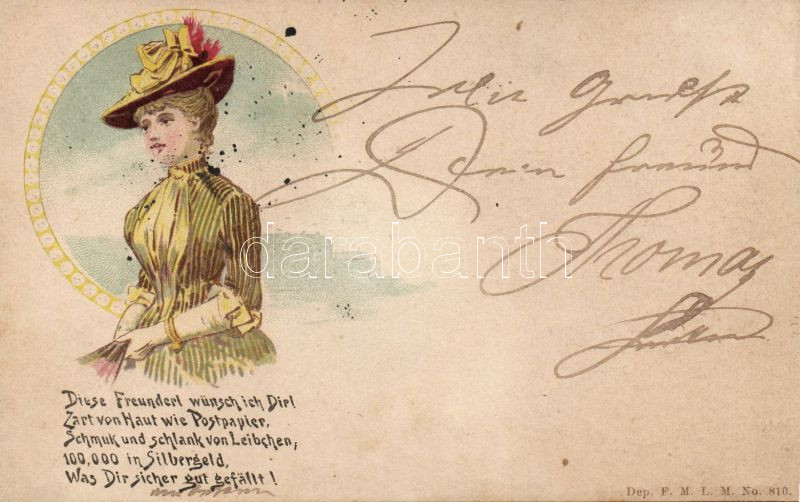 Diese Freunderl wünsch ich Dir!
Zart von Haut wie Postpapier,
Schmuk und schlank von Leibchen,
100,000 in Silbergeld,
Was Dir sicher gut gefällt!
Dein freund
Thomas
darabanth.com
Dep. F. M. L. M. No. 810.